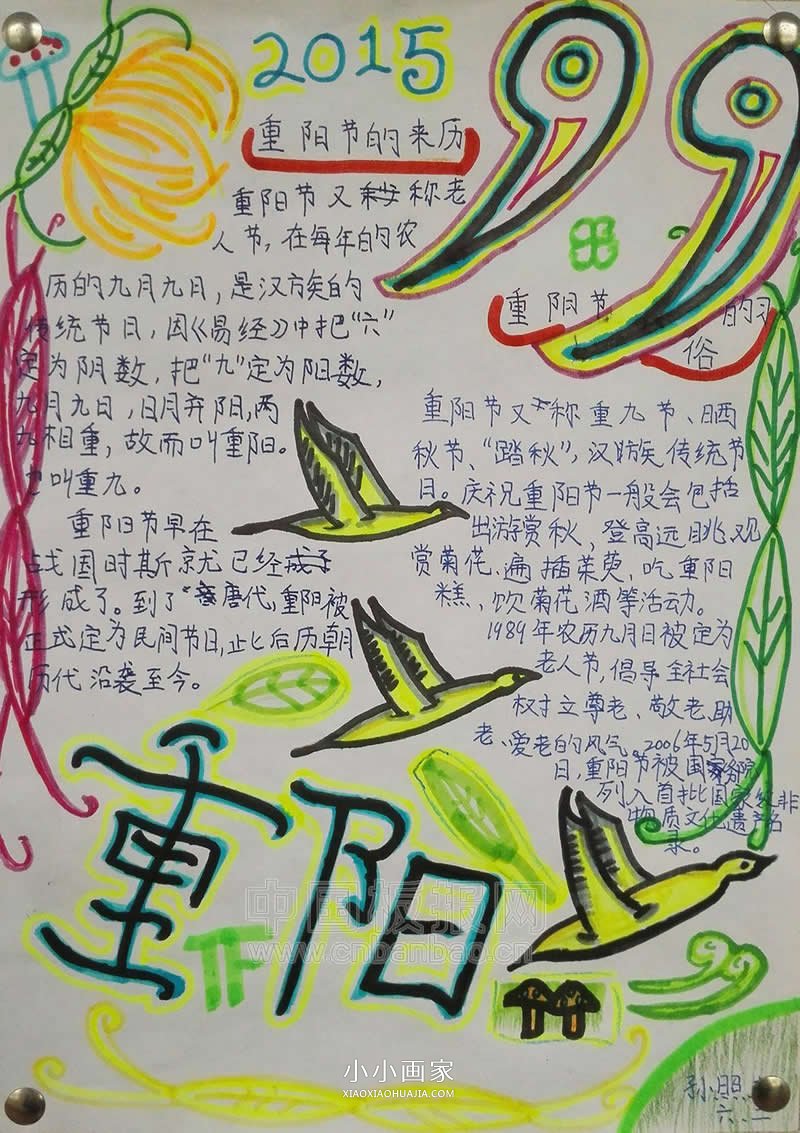 2015
重阳节的来历
重阳节又称老
人节，在每年的农
历的九月九日，是汉族的
传统节日，因《易经》中把“六”
定为阴数，把“九”定为阳数，
九月九日，日月并阳，两
九相重，故而叫重阳。
也叫重九。
重阳节早在
战国时斯就已经
形成了。到了唐代，重阳被
正式定为民间节日，此后历朝
历代沿袭至今。
99
重阳节的习
俗
重阳节又称重九节、晒
秋节、“踏秋”，汉族传统节
日。庆祝重阳节一般会包括
出游赏秋，登高远眺、观
赏菊花、遍插茱萸，吃重阳
糕、饮菊花酒等活动。
1989年农历九月日被定为
老人节，倡导全社会
树立尊老、敬老、助
老、爱老的风气。2006年5月20
日，重阳节被国务院
列入首批国家级非
物质文化遗产名
录。
重阳
中国板报网
www.cnbanbao.cn
小小画家
XIAOXIAOHUAJIA.COM
孙照
六、二